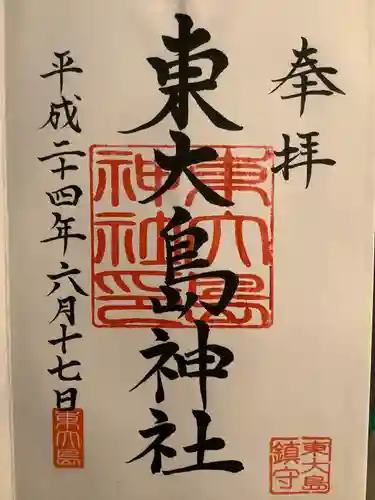 奉拝
東大島神社
平成二十四年六月十七日
東大島神社印
東大島
鎮守
東大島